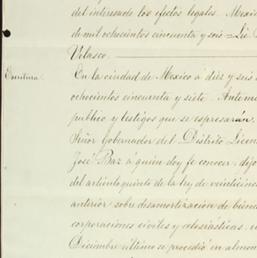 del interesado los efectos legales. Mexico
de mil ochocientos cincuenta y seis = Lic.
Velasco.
Escritura. En la ciudad de Mexico á diez y seis
ochocientos cincuenta y siete. Ante mi
publico y testigos que se espresarán
Señor Gobernador del Distrito Licen
José Baz á quien doy fe conozco, dijo
del artículo quinto de la ley de veinticinco
anterior sobre desamortizacion de biene
corporaciones civiles y eclesiásticas, en
Diciembre último se procedió en almon